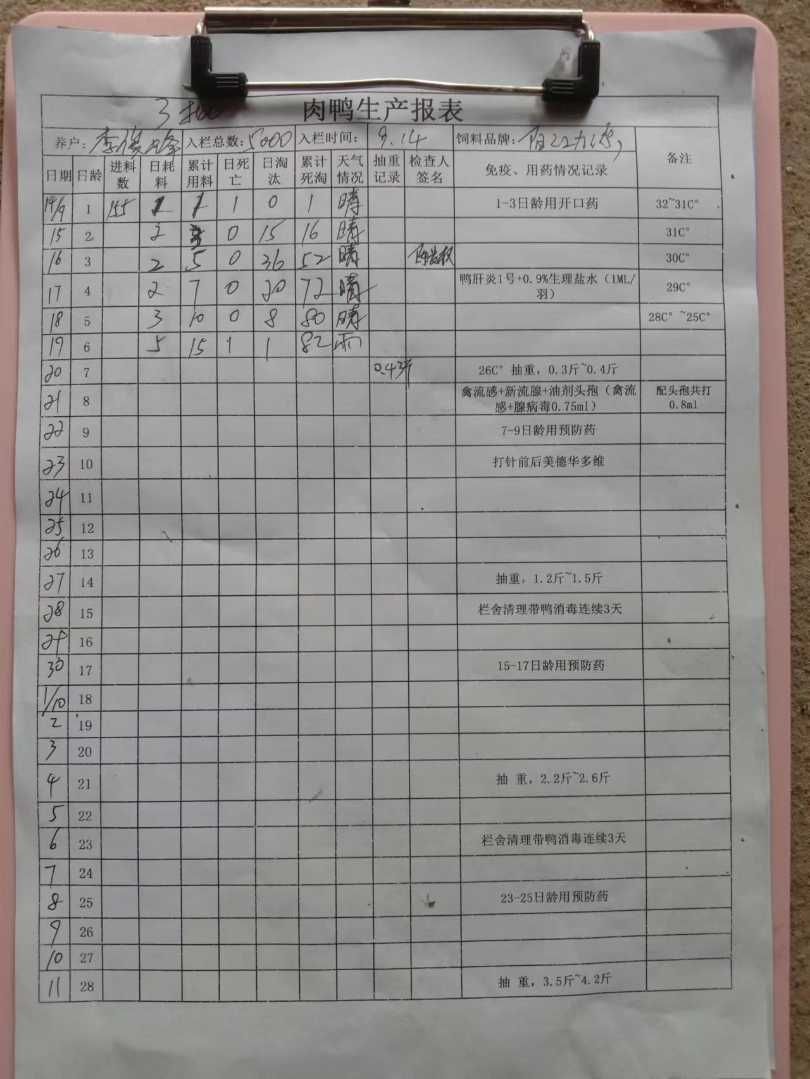 肉鸭生产报表
养户: 李 入栏总数: 5000 入栏时间: 9.14 饲料品牌:
日期 日龄 进料数 日耗料 累计用料 日死亡 日淘汰 累计死淘 天气情况 抽重记录 检查人签名 免疫、用药情况记录 备注
14/9 1 155 1 1 1 0 1 晴 1-3日龄用开口药 32~31C°
15 2 2 3 0 15 16 晴 31C°
16 3 2 5 0 36 52 晴 30C°
17 4 2 7 0 20 72 晴 鸭肝炎1号+0.9%生理盐水（1ML/羽） 29C°
18 5 3 10 0 8 80 晴 28C° ~25C°
19 6 5 15 1 1 82 雨
20 7 0.43斤 26C° 抽重，0.3斤~0.4斤
21 8 禽流感+新流腺+油剂头孢（禽流感+腺病毒0.75ml） 配头孢共打0.8ml
22 9 7-9日龄用预防药
23 10 打针前后美德华多维
24 11
25 12
26 13
27 14 抽重，1.2斤~1.5斤
28 15 栏舍清理带鸭消毒连续3天
29 16
30 17 15-17日龄用预防药
1/10 18
2 19
3 20
4 21 抽 重，2.2斤~2.6斤
5 22
6 23 栏舍清理带鸭消毒连续3天
7 24
8 25 23-25日龄用预防药
9 26
10 27
11 28 抽 重，3.5斤~4.2斤